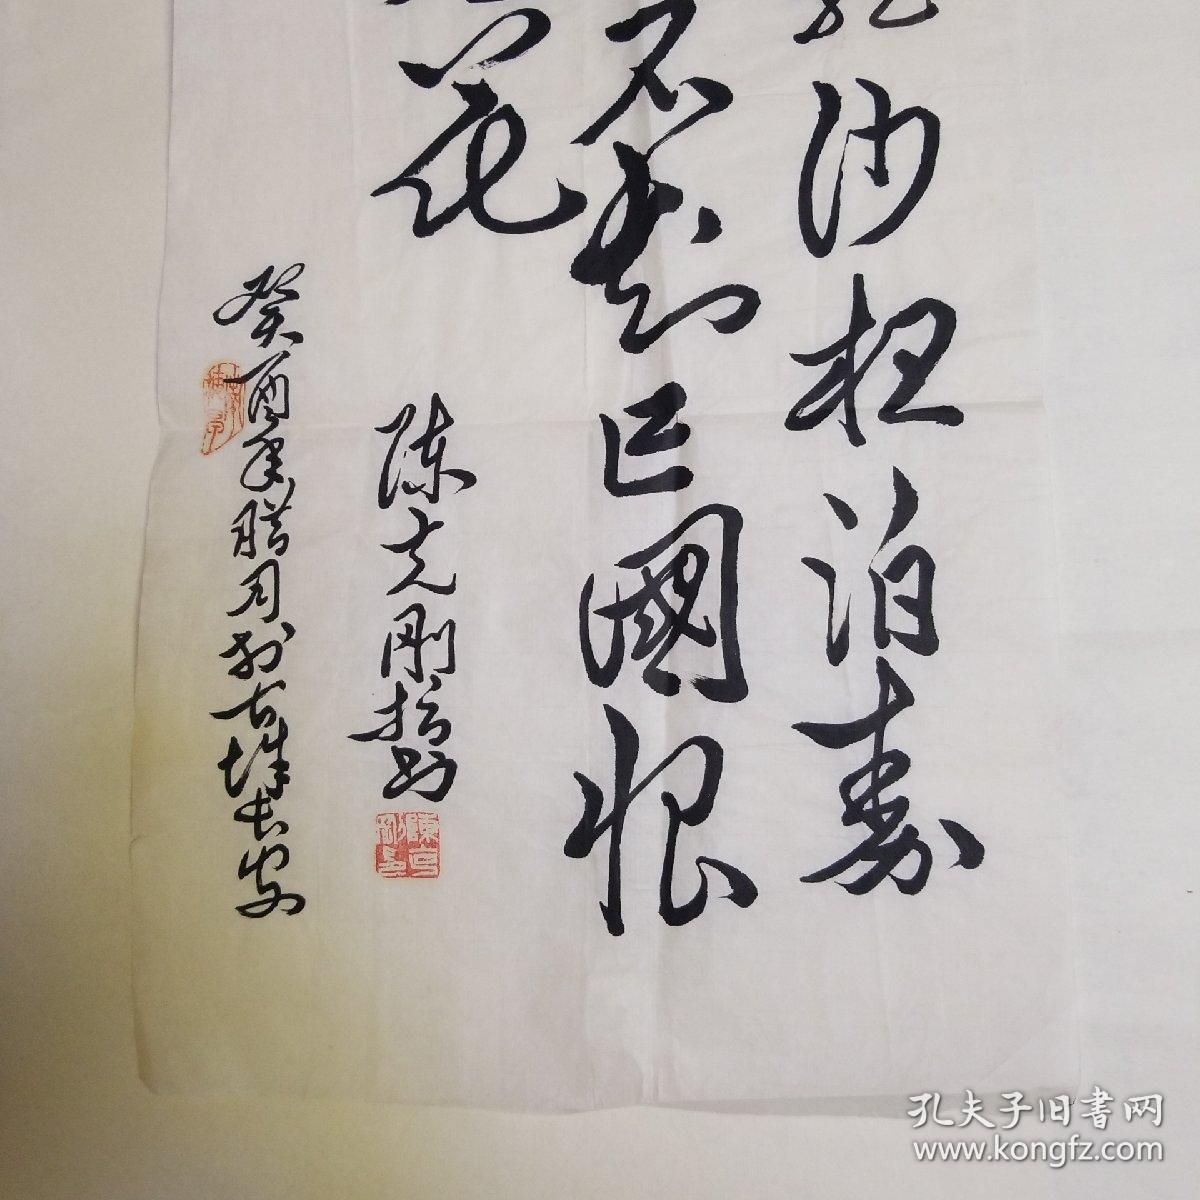 沙夜泊秦
不知亡國恨
花
陈克刚指书
癸酉年腊月於古城长安
孔夫子旧书网
www.kongfz.com